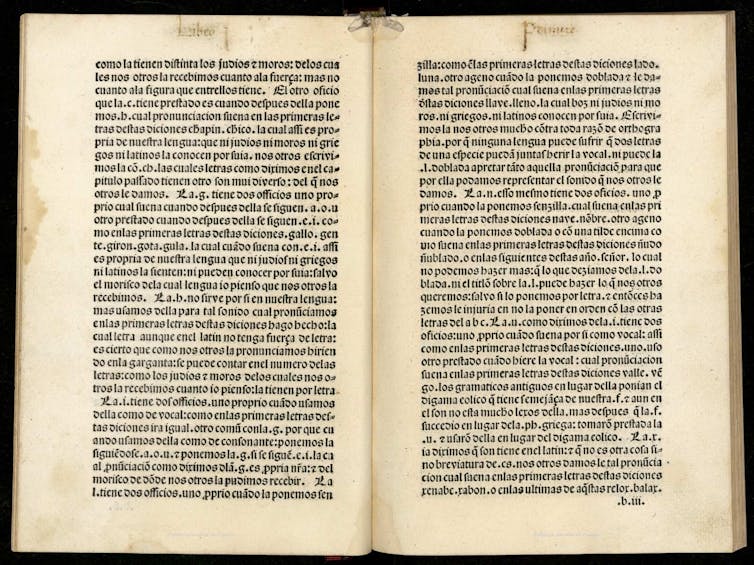 Libro
como la tienen distinta los judios ⁊ moros: delos cua
les nos otros la recebimos cuanto ala fuerça: mas no
cuanto ala figura que entrellos tiene. El otro oficio
que la.c. tiene prestado es cuando despues della pone
mos.h. cual pronunciacion suena en las primeras le⸗
tras destas diciones chapin. chico. la cual assi es pro⸗
pria de nuestra lengua: que ni judios ni moros ni grie
gos ni latinos la conocen por suia. nos otros escrivi⸗
mos la cõ.ch. las cuales letras como diximos en el ca⸗
pitulo passado tienen otro son mui diverso: del q̃ nos
otros le damos. La.g. tiene dos officios uno pro⸗
prio cual suena cuando despues della se siguen.a.o.u
otro prestado cuando despues della se siguen.e.i. co⸗
mo enlas primeras letras destas diciones. gallo. gen
te. giron. gota. gula. la cual cuãdo suena con.e.i. assi
es propria de nuestra lengua que ni judios ni griegos
ni latinos la sienten: ni pueden conocer por suia: salvo
el morisco dela cual lengua io pienso que nos otros la
recebimos. La.h. no sirve por si en nuestra lengua:
mas usamos della para tal sonido cual pronũciamos
enlas primeras letras destas diciones hago hecho: la
cual letra aunque enel latin no tenga fuerça de letra:
es cierto que como nos otros la pronunciamos hirien
do enla garganta: se puede contar enel numero delas
letras: como los judios ⁊ moros delos cuales nos o⸗
tros la recebimos cuanto io pienso: la tienen por letra
La.i. tiene dos officios. uno proprio cuãdo usamos
della como de vocal: como enlas primeras letras des⸗
tas diciones ira igual. otro comũ conla.g. por que cu
ando usamos della como de consonante: ponemos la
siguiẽdose.a.o.u. ⁊ ponemos la.g. si se siguẽ.e.i. la cu
al ꝓnũciació como diximos dla.g. es ꝓpria nr̃a: ⁊ del
morisco de dõde nos otros la pudimos recebir. La
l. tiene dos officios. uno ꝓprio cuãdo la ponemos sen
Primero
zilla: como ẽlas primeras letras destas diciones lado.
luna. otro ageno cuãdo la ponemos doblada ⁊ le da⸗
mos tal pronũciació cual suena enlas primeras letras
d̃stas diciones llave. lleno. la cual boz ni judios ni mo
ros. ni griegos. ni latinos conocen por suia. Escrivi⸗
mos la nos otros mucho cõtra toda razõ de orthogra
phia. por q̃ ninguna lengua puede sufrir q̃ dos letras
de una especie puedã juntas herir la vocal. ni puede la
.l. doblada apretar tãto aquella pronũciació para que
por ella podamos representar el sonido q̃ nos otros le
damos. La.n. esso mesmo tiene dos oficios. uno.ꝓ
prio cuando la ponemos senzilla. cual suena enlas pri
meras letras destas diciones nave. nõbre. otro ageno
cuando la ponemos doblada o cõ una tilde encima co
mo suena enlas primeras letras destas diciones ñudo
ñublado. o enlas siguientes destas año. señor. lo cual
no podemos hazer mas: q̃ lo que deziamos dela.l. do
blada. ni el titlõ sobre la.l. puede hazer lo q̃ nos otros
queremos: salvo si lo ponemos por letra. ⁊ entõces ha
zemos le injuria en no la poner en orden cõ las otras
letras del a b c. La.u. como dirimos dela.i. tiene dos
oficios: uno.ꝓprio cuãdo suena por si como vocal: assi
como enlas primeras letras destas diciones. uno. uso
otro prestado cuãdo hiere la vocal: cual pronũciacion
suena enlas primeras letras destas diciones valle. vẽ
go. los gramaticos antiguos en lugar della ponian el
digama eolico q̃ tiene semejãça de nuestra.f. ⁊ aun en
el son no esta mucho lexos della. mas despues q̃ la.f.
succedio en lugar dela.ph. griega: tomarõ prestada la
.u. ⁊ usarõ della en lugar del digama eolico. La.x.
ia diximos q̃ son tiene en el latin: ⁊ q̃ no es otra cosa si⸗
no breviatura de.cs. nos otros damos le tal pronũcia
cion cual suena enlas primeras letras destas diciones
xenabe. xabon. o enlas ultimas de aq̃stas relox. balax.
.b.iii.